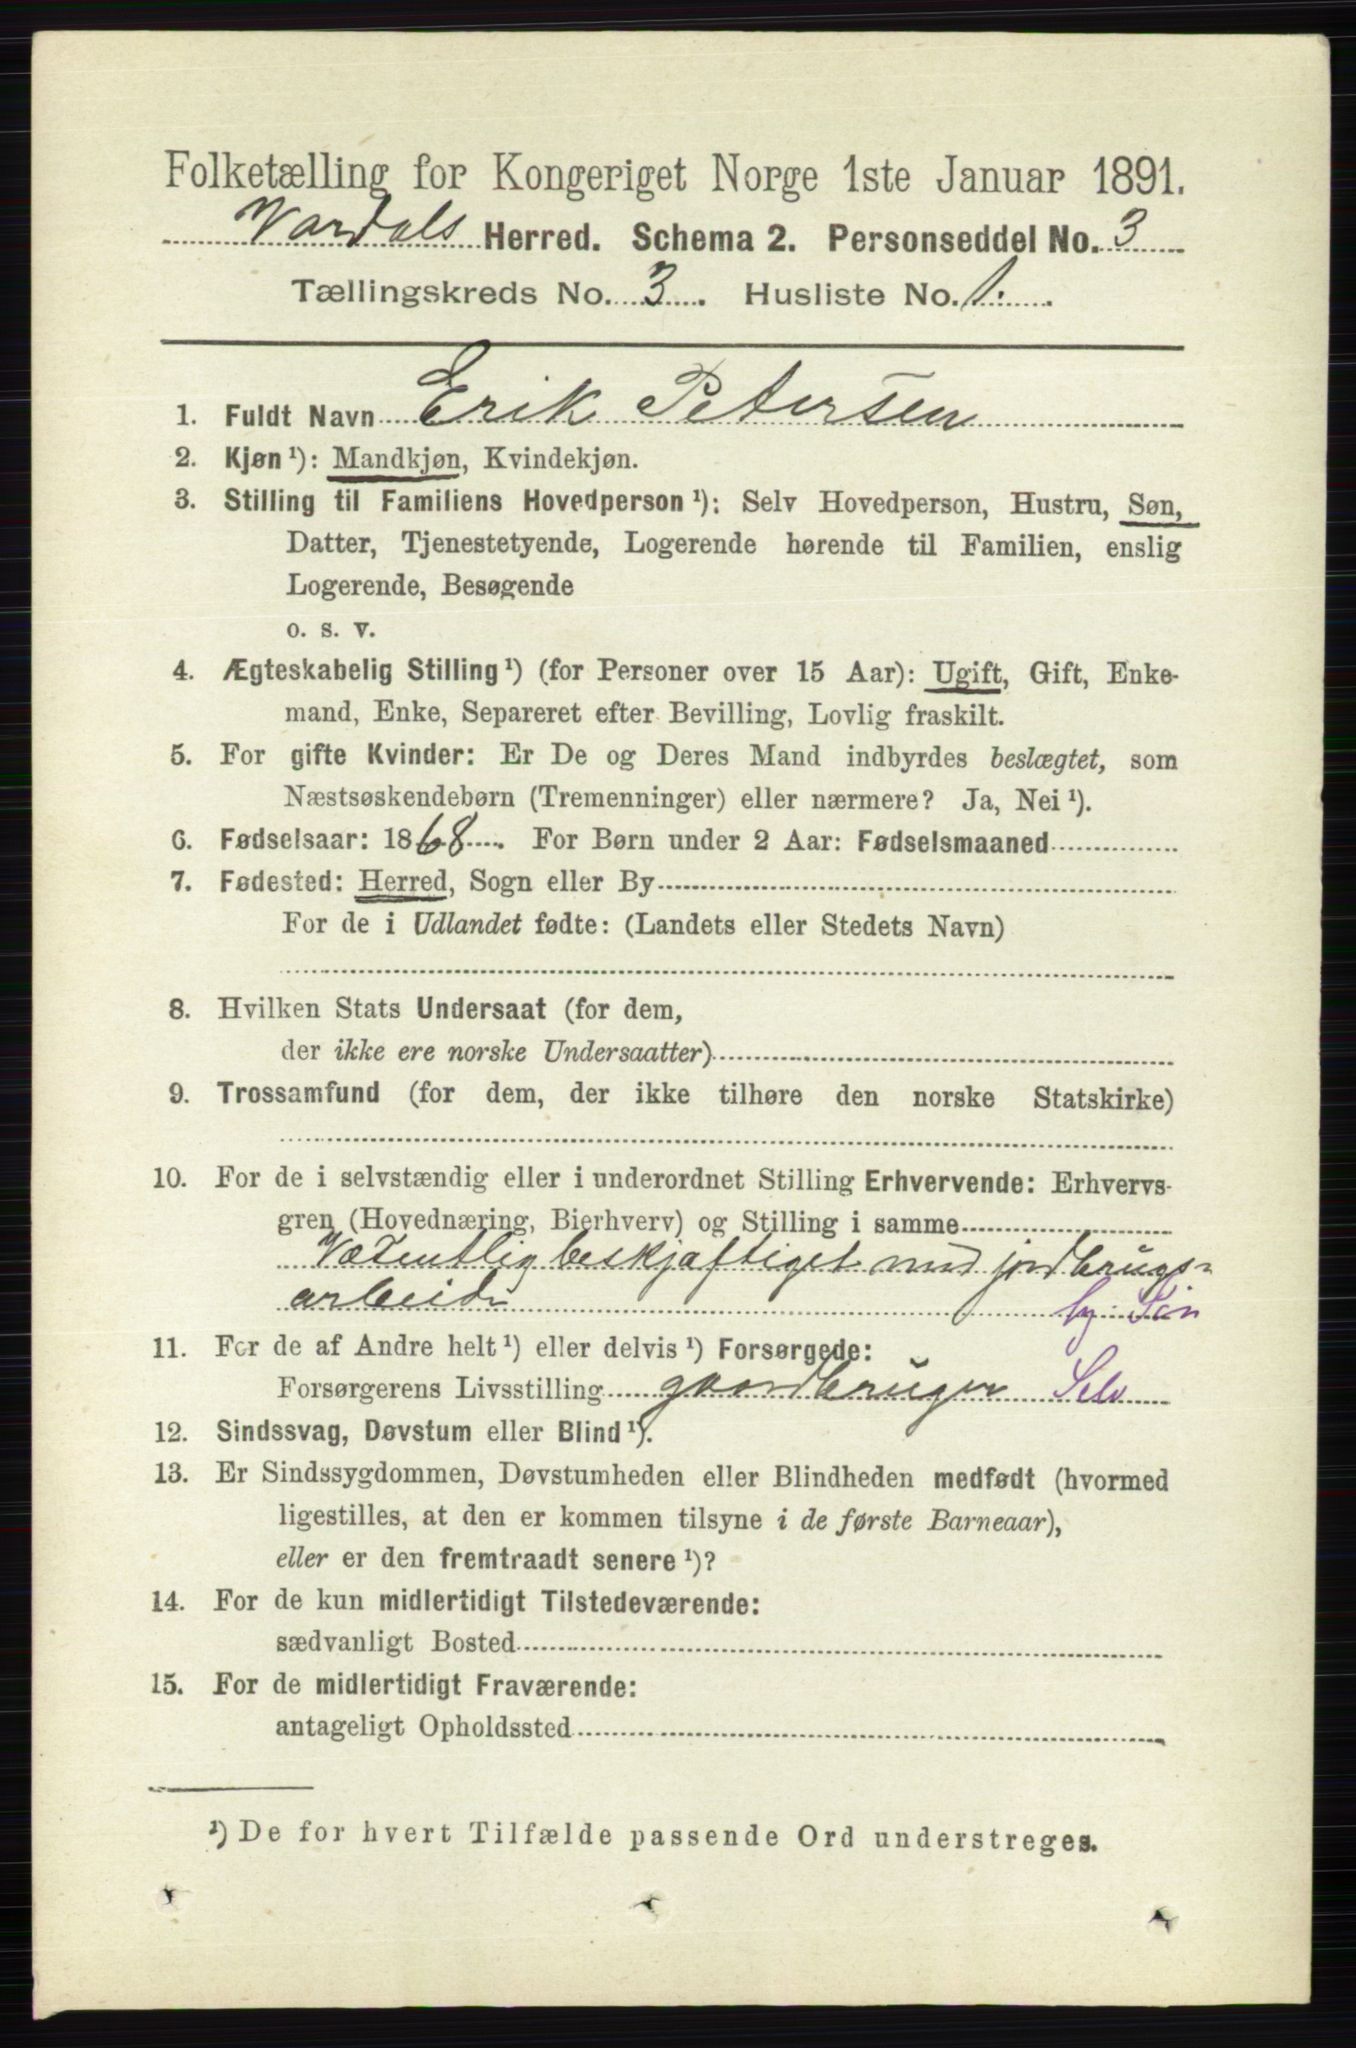 Folketælling for Kongeriget Norge 1ste Januar 1891.
Vardals Herred. Schema 2. Personseddel No. 3
Tællingskreds No. 3. Husliste No. 1.
1. Fuldt Navn Erik Petersen
2. Kjøn ¹): Mandkjøn, Kvindekjøn.
3. Stilling til Familiens Hovedperson ¹): Selv Hovedperson, Hustru, Søn,
Datter, Tjenestetyende, Logerende hørende til Familien, enslig
Logerende, Besøgende
o. s. v.
4. Ægteskabelig Stilling ¹) (for Personer over 15 Aar): Ugift, Gift, Enke-
mand, Enke, Separeret efter Bevilling, Lovlig fraskilt.
5. For gifte Kvinder: Er De og Deres Mand indbyrdes beslægtet, som
Næstsøskendebørn (Tremenninger) eller nærmere? Ja, Nei ¹).
6. Fødselsaar: 1868. For Børn under 2 Aar: Fødselsmaaned
7. Fødested: Herred, Sogn eller By
For de i Udlandet fødte: (Landets eller Stedets Navn)
8. Hvilken Stats Undersaat (for dem,
der ikke ere norske Undersaatter)
9. Trossamfund (for dem, der ikke tilhøre den norske Statskirke)
10. For de i selvstændig eller i underordnet Stilling Erhvervende: Erhvervs-
gren (Hovednæring, Bierhverv) og Stilling i samme
Væsentlig beskjæftiget med jordbrugs-
arbeide
11. For de af Andre helt ¹) eller delvis ¹) Forsørgede:
Forsørgerens Livsstilling gaardbruger Selv
12. Sindssvag, Døvstum eller Blind ¹).
13. Er Sindssygdommen, Døvstumheden eller Blindheden medfødt (hvormed
ligestilles, at den er kommen tilsyne i de første Barneaar),
eller er den fremtraadt senere ¹)?
14. For de kun midlertidigt Tilstedeværende:
sædvanligt Bosted
15. For de midlertidigt Fraværende:
antageligt Opholdssted
¹) De for hvert Tilfælde passende Ord understreges.